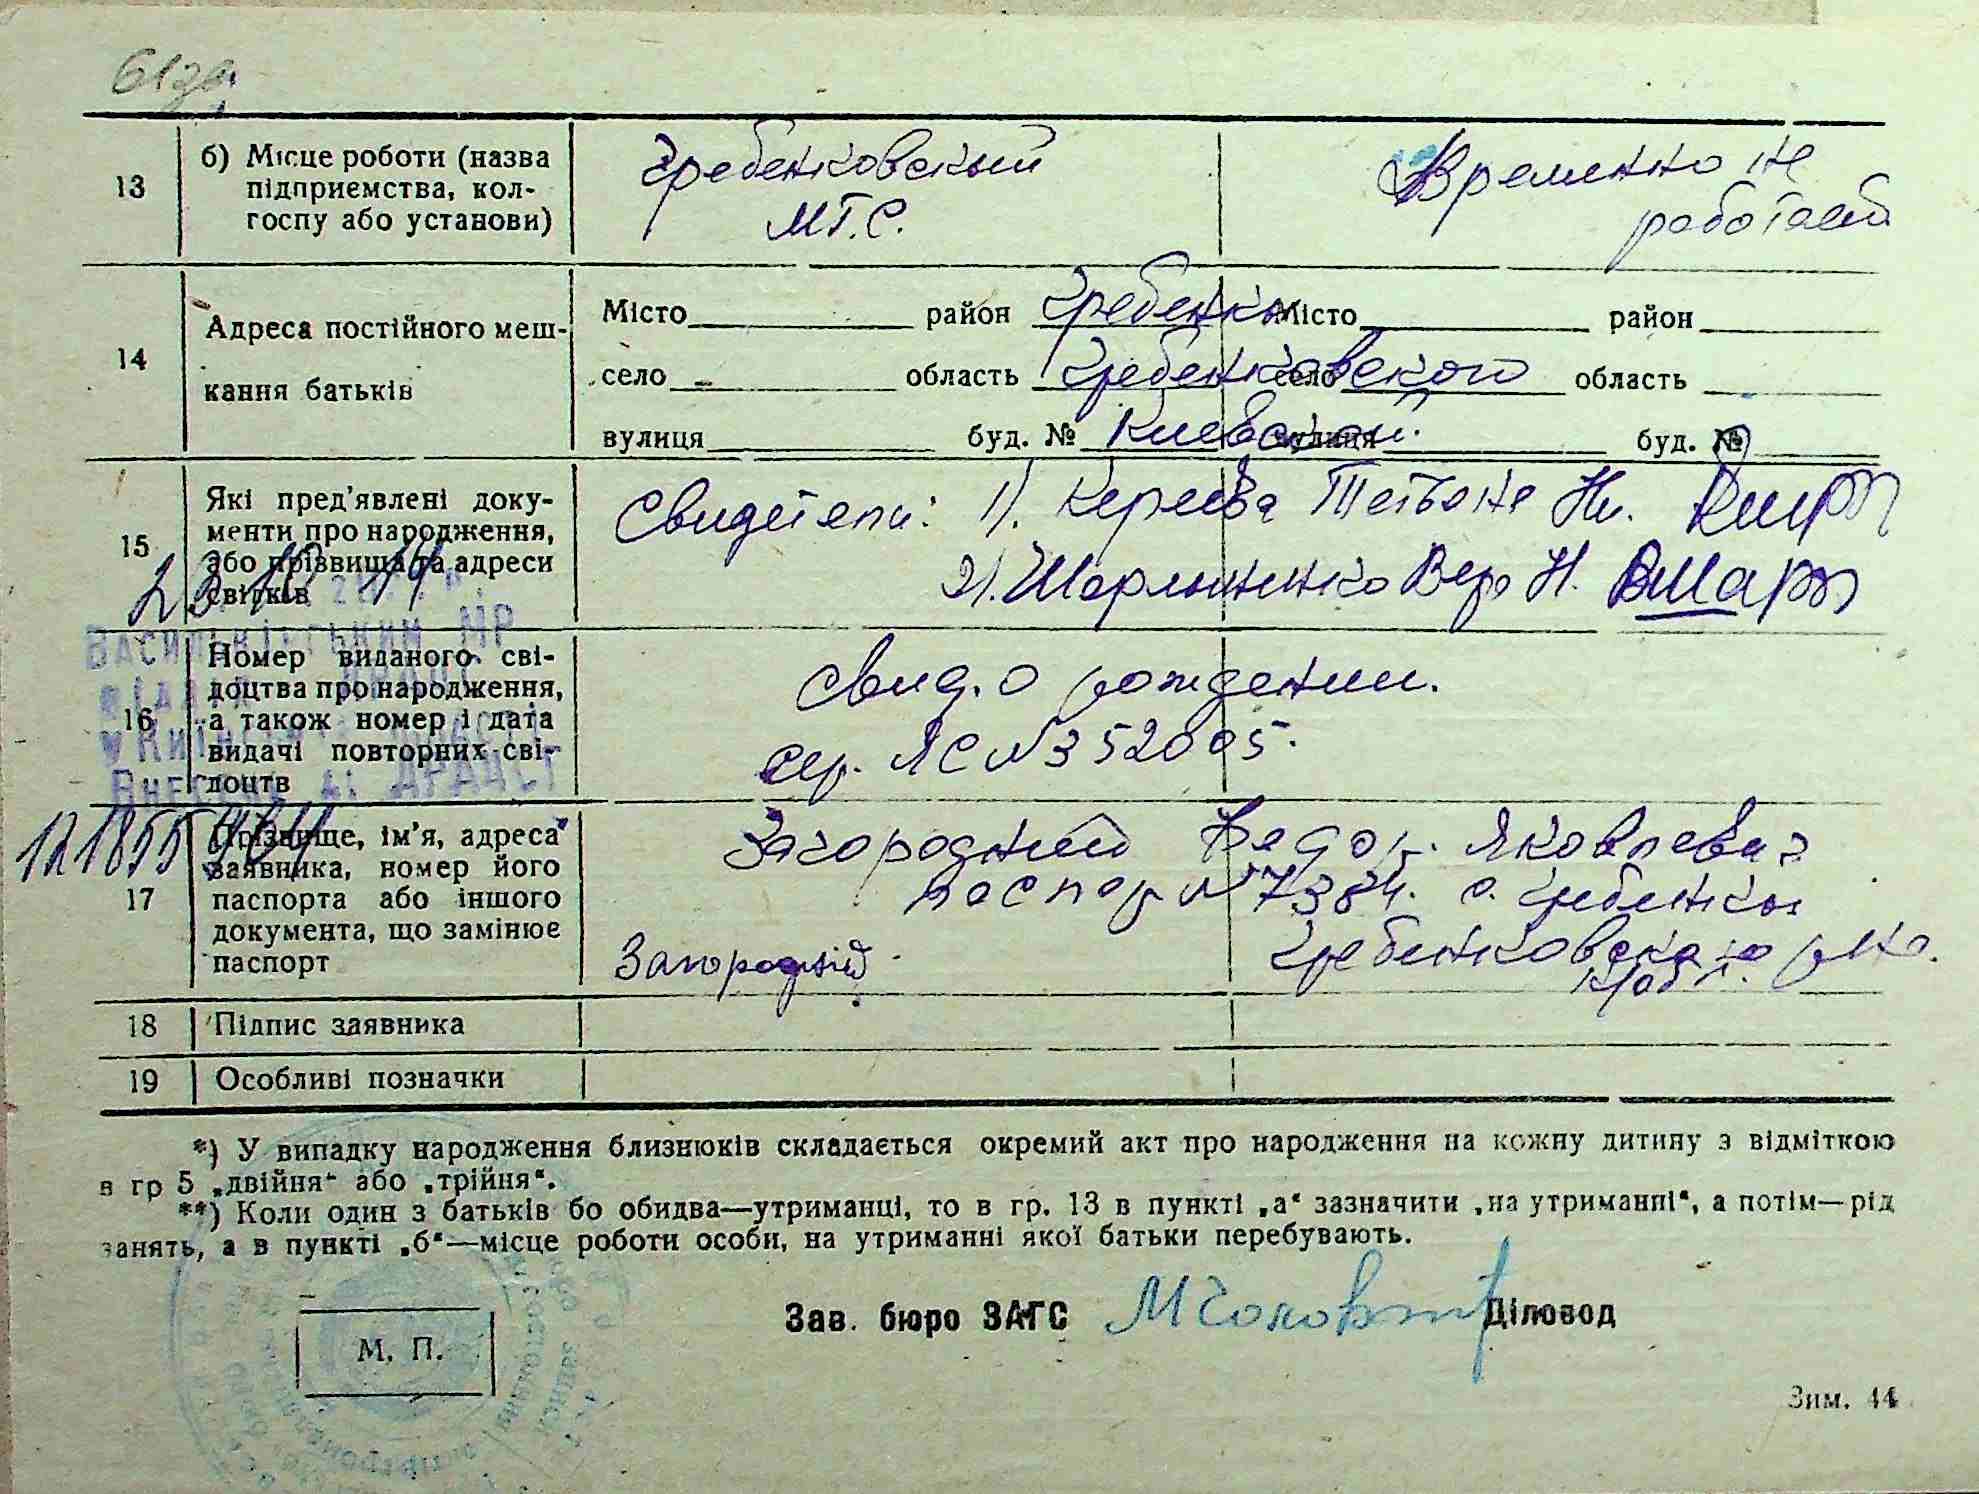 61зв.
13 б) Місце роботи (назва Гребенковский Временно не
підприємства, кол- М.Т.С. работает
госпу або установи)
14 Адреса постійного меш- Місто район Гребенки Місто район
кання батьків село область Гребенковского село область
вулиця буд. № Киевской. вулиця буд. №
15 Які пред'явлені доку- Свидетели: 1).
менти про народження, 2).
або прізвища та адреси
свідків
Васильківський МР
16 Номер виданого сві- Свид. о рождении.
доцтва про народження, сер. ЯС № 352005.
а також номер і дата
видачі повторних сві-
доцтв
17 Прізвище, ім'я, адреса Загородний Федор. Яковлевич
заявника, номер його паспорт № 7384. с. Гребенки
паспорта або іншого Гребенковского р-на.
документа, що замінює
паспорт Загородній
18 Підпис заявника
19 Особливі позначки
*) У випадку народження близнюків складається окремий акт про народження на кожну дитину з відміткою
в гр 5 „двійня“ або „трійня“.
**) Коли один з батьків бо обидва—утриманці, то в гр. 13 в пункті „а“ зазначити „на утриманні“, а потім—рід
занять, а в пункті „б“—місце роботи особи, на утриманні якої батьки перебувають.
Зав. бюро ЗАГС Діловод
М. П.
Зим. 44